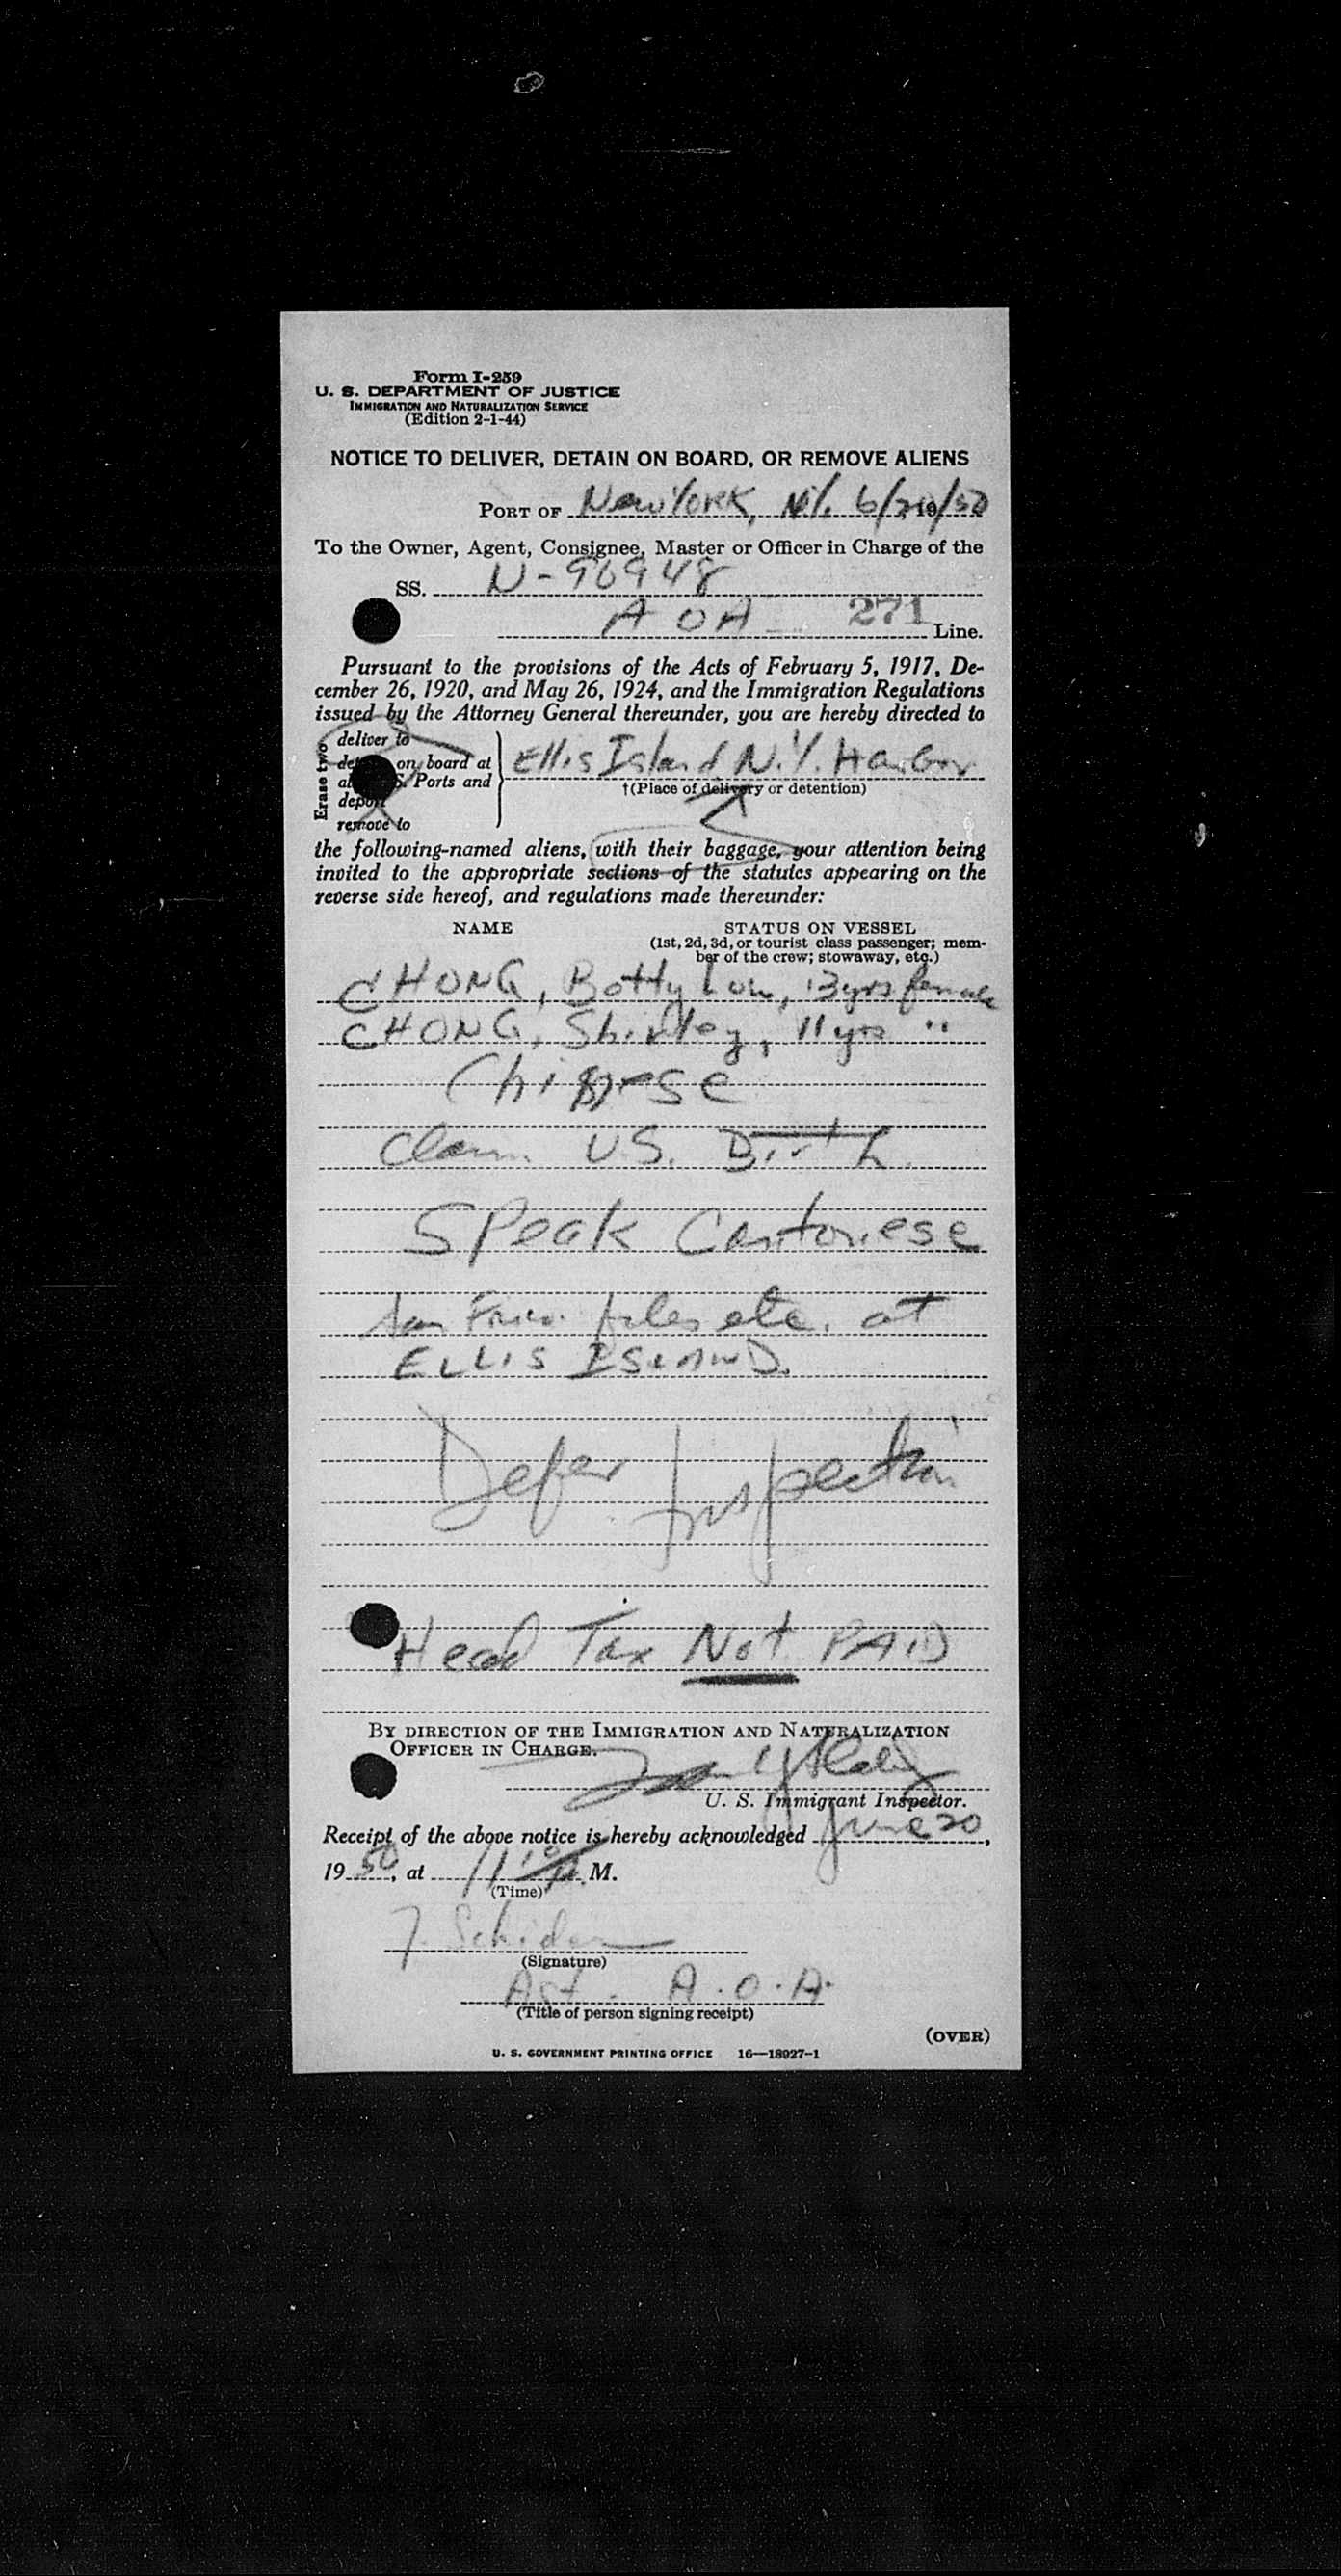 Form I-259
U. S. DEPARTMENT OF JUSTICE
IMMIGRATION AND NATURALIZATION SERVICE
(Edition 2-1-44)
NOTICE TO DELIVER, DETAIN ON BOARD, OR REMOVE ALIENS
PORT OF New York, N.Y. 6/20/50
To the Owner, Agent, Consignee, Master or Officer in Charge of the
SS. N-90948
A O A 271 Line.
Pursuant to the provisions of the Acts of February 5, 1917, De-
cember 26, 1920, and May 26, 1924, and the Immigration Regulations
issued by the Attorney General thereunder, you are hereby directed to
Erase two
deliver to
on board at
Ports and
deport
remove to
Ellis Island N.Y. Harbor
†(Place of delivery or detention)
the following-named aliens, with their baggage, your attention being
invited to the appropriate sections of the statutes appearing on the
reverse side hereof, and regulations made thereunder:
NAME STATUS ON VESSEL
(1st, 2d, 3d, or tourist class passenger; mem-
ber of the crew; stowaway, etc.)
CHONG, Betty Lou, 13yrs female
CHONG, Shirley, 11 yrs "
Chinese
Claim U.S. Birth.
Speak Cantonese
San files etc. at
ELLIS ISLAND.
Defer Inspection
Head Tax Not PAID
BY DIRECTION OF THE IMMIGRATION AND NATURALIZATION
OFFICER IN CHARGE.
U. S. Immigrant Inspector.
Receipt of the above notice is hereby acknowledged June 20,
1950, at 11 M.
(Time)
(Signature)
A.O.A.
(Title of person signing receipt)
(OVER)
U. S. GOVERNMENT PRINTING OFFICE 16—18927-1